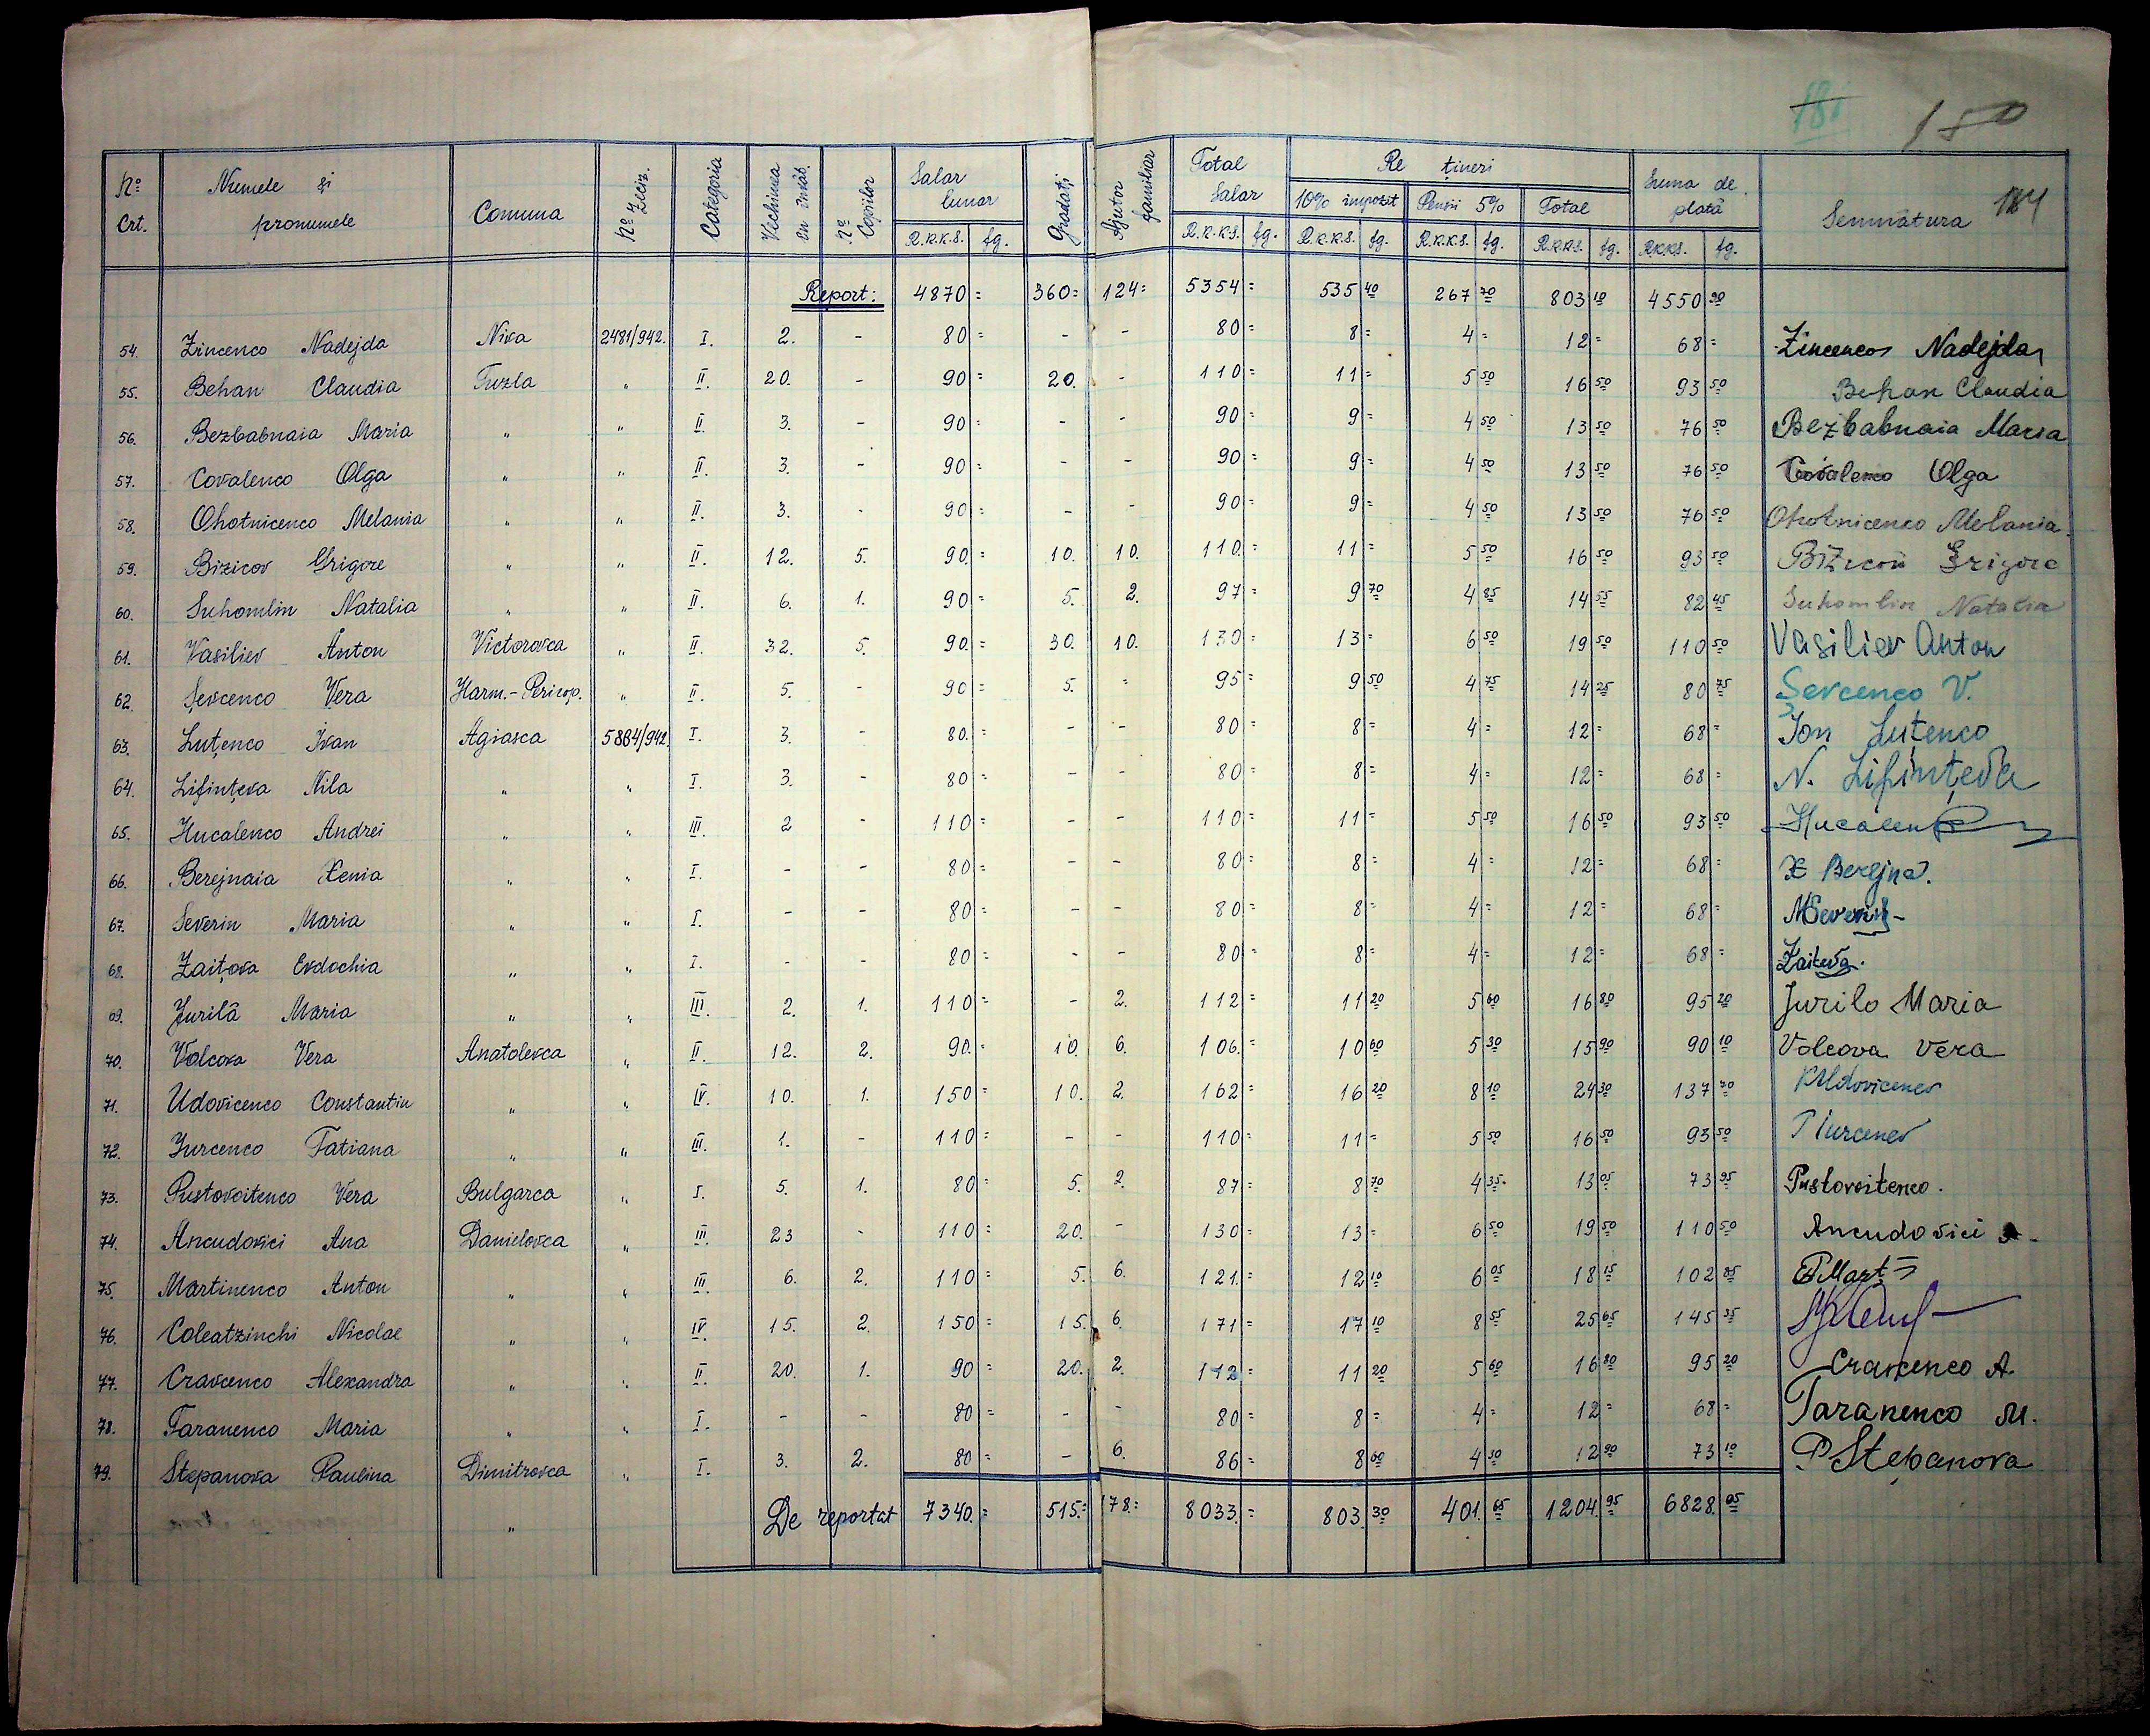 181 150
Nº Crt. Numele și pronumele Comuna Nº deciz. Categoria Vechimea în învăț. Nº Copiilor Salar lunar Gradați Ajutor familiar Total Salar Re țineri Suma de plată Semnătura 184
10% impozit Pensii 5% Total
R.K.K.S. fg. R.K.K.S. fg. R.K.K.S. fg. R.K.K.S. fg. R.K.K.S. fg. R.K.K.S. fg.
Report: 4870 = 360= 124= 5354 = 535 40 267 70 803 10 4550 90
54. Zincenco Nadejda Niva 2481/942. I. 2. - 80 = - - 80 = 8 = 4 = 12 = 68 = Zincenco Nadejda
55. Behan Claudia Tuzla " II. 20. - 90 = 20. - 110 = 11 = 5 50 16 50 93 50 Behan Claudia
56. Bezbabnaia Maria " " II. 3. - 90 = - - 90 = 9 = 4 50 13 50 76 50 Bezbabnaia Maria
57. Covalenco Olga " " II. 3. - 90 = - - 90 = 9 = 4 50 13 50 76 50 Covalenco Olga
58. Ohotnicenco Melania " " II. 3. - 90 = - - 90 = 9 = 4 50 13 50 76 50 Ohotnicenco Melania
59. Bizicov Grigore " " II. 12. 5. 90. = 10. 10. 110. = 11 = 5 50 16 50 93 50 Bizicov Grigore
60. Suhomlin Natalia " " II. 6. 1. 90 = 5. 2. 97 = 9 70 4 85 14 55 82 45 Suhomlin Natalia
61. Vasiliev Anton Victorovca " II. 32. 5. 90. = 30. 10. 130 = 13 = 6 50 19 50 110 50 Vasiliev Anton
62. Șevcenco Vera Harm.-Pericop. " II. 5. - 90 = 5. - 95 = 9 50 4 75 14 25 80 75 Sevcenco V.
63. Luțenco Ivan Agiasca 5884/942. I. 3. - 80. = - - 80 = 8 = 4 = 12 = 68 = Ion Luțenco
64. Lifințeva Nila " " I. 3. - 80 = - - 80 = 8 = 4 = 12 = 68 = N. Lifințeva
65. Hucalenco Andrei " " III. 2 - 110 = - - 110 = 11 = 5 50 16 50 93 50 Hucalen
66. Berejnaia Xenia " " I. - - 80 = - - 80 = 8 = 4 = 12 = 68 = X Berejna.
67. Severin Maria " " I. - - 80 = - - 80 = 8 = 4 = 12 = 68 = MSeverin
68. Zaițova Evdochia " " I. - - 80 = - - 80 = 8 = 4 = 12 = 68 = Zaiteva.
69. Jurilă Maria " " III. 2. 1. 110 = - 2. 112 = 11 20 5 60 16 80 95 20 Jurilo Maria
70. Volcova Vera Anatolevca " II. 12. 2. 90. = 10. 6. 106. = 10 60 5 30 15 90 90 10 Volcova Vera
71. Udovicenco Constantin " " IV. 10. 1. 150 = 10. 2. 162 = 16 20 8 10 24 30 137 70
72. Iurcenco Tatiana " " III. 1. - 110 = - - 110 = 11 = 5 50 16 50 93 50 T Iurcenco
73. Pustovoitenco Vera Bulgarca " I. 5. 1. 80 = 5. 2. 87 = 8 70 4 35 13 05 73 95 Pustovoitenco.
74. Ancudovici Ana Danielovca " III. 23 - 110 = 20. - 130 = 13 = 6 50 19 50 110 50 Ancudovici A
75. Martinenco Anton " " III. 6. 2. 110 = 5. 6. 121. = 12 10 6 05 18 15 102 85 AMart
76. Coleatzinchi Nicolae " " IV. 15. 2. 150 = 15. 6. 171 = 17 10 8 55 25 65 145 35
77. Cravcenco Alexandra " " II. 20. 1. 90 = 20. 2. 112 = 11 20 5 60 16 80 95 20 Cravcenco A
78. Taranenco Maria " " I. - - 80 = - - 80 = 8 = 4 = 12 = 68 = Taranenco M.
79. Stepanova Paulina Dimitrovca " I. 3. 2. 80 = - 6. 86 = 8 60 4 30 12 90 73 10 P Stepanova
" De reportat 7340. = 515.= 178.= 8033. = 803. 30 401. 65 1204. 95 6828. 05